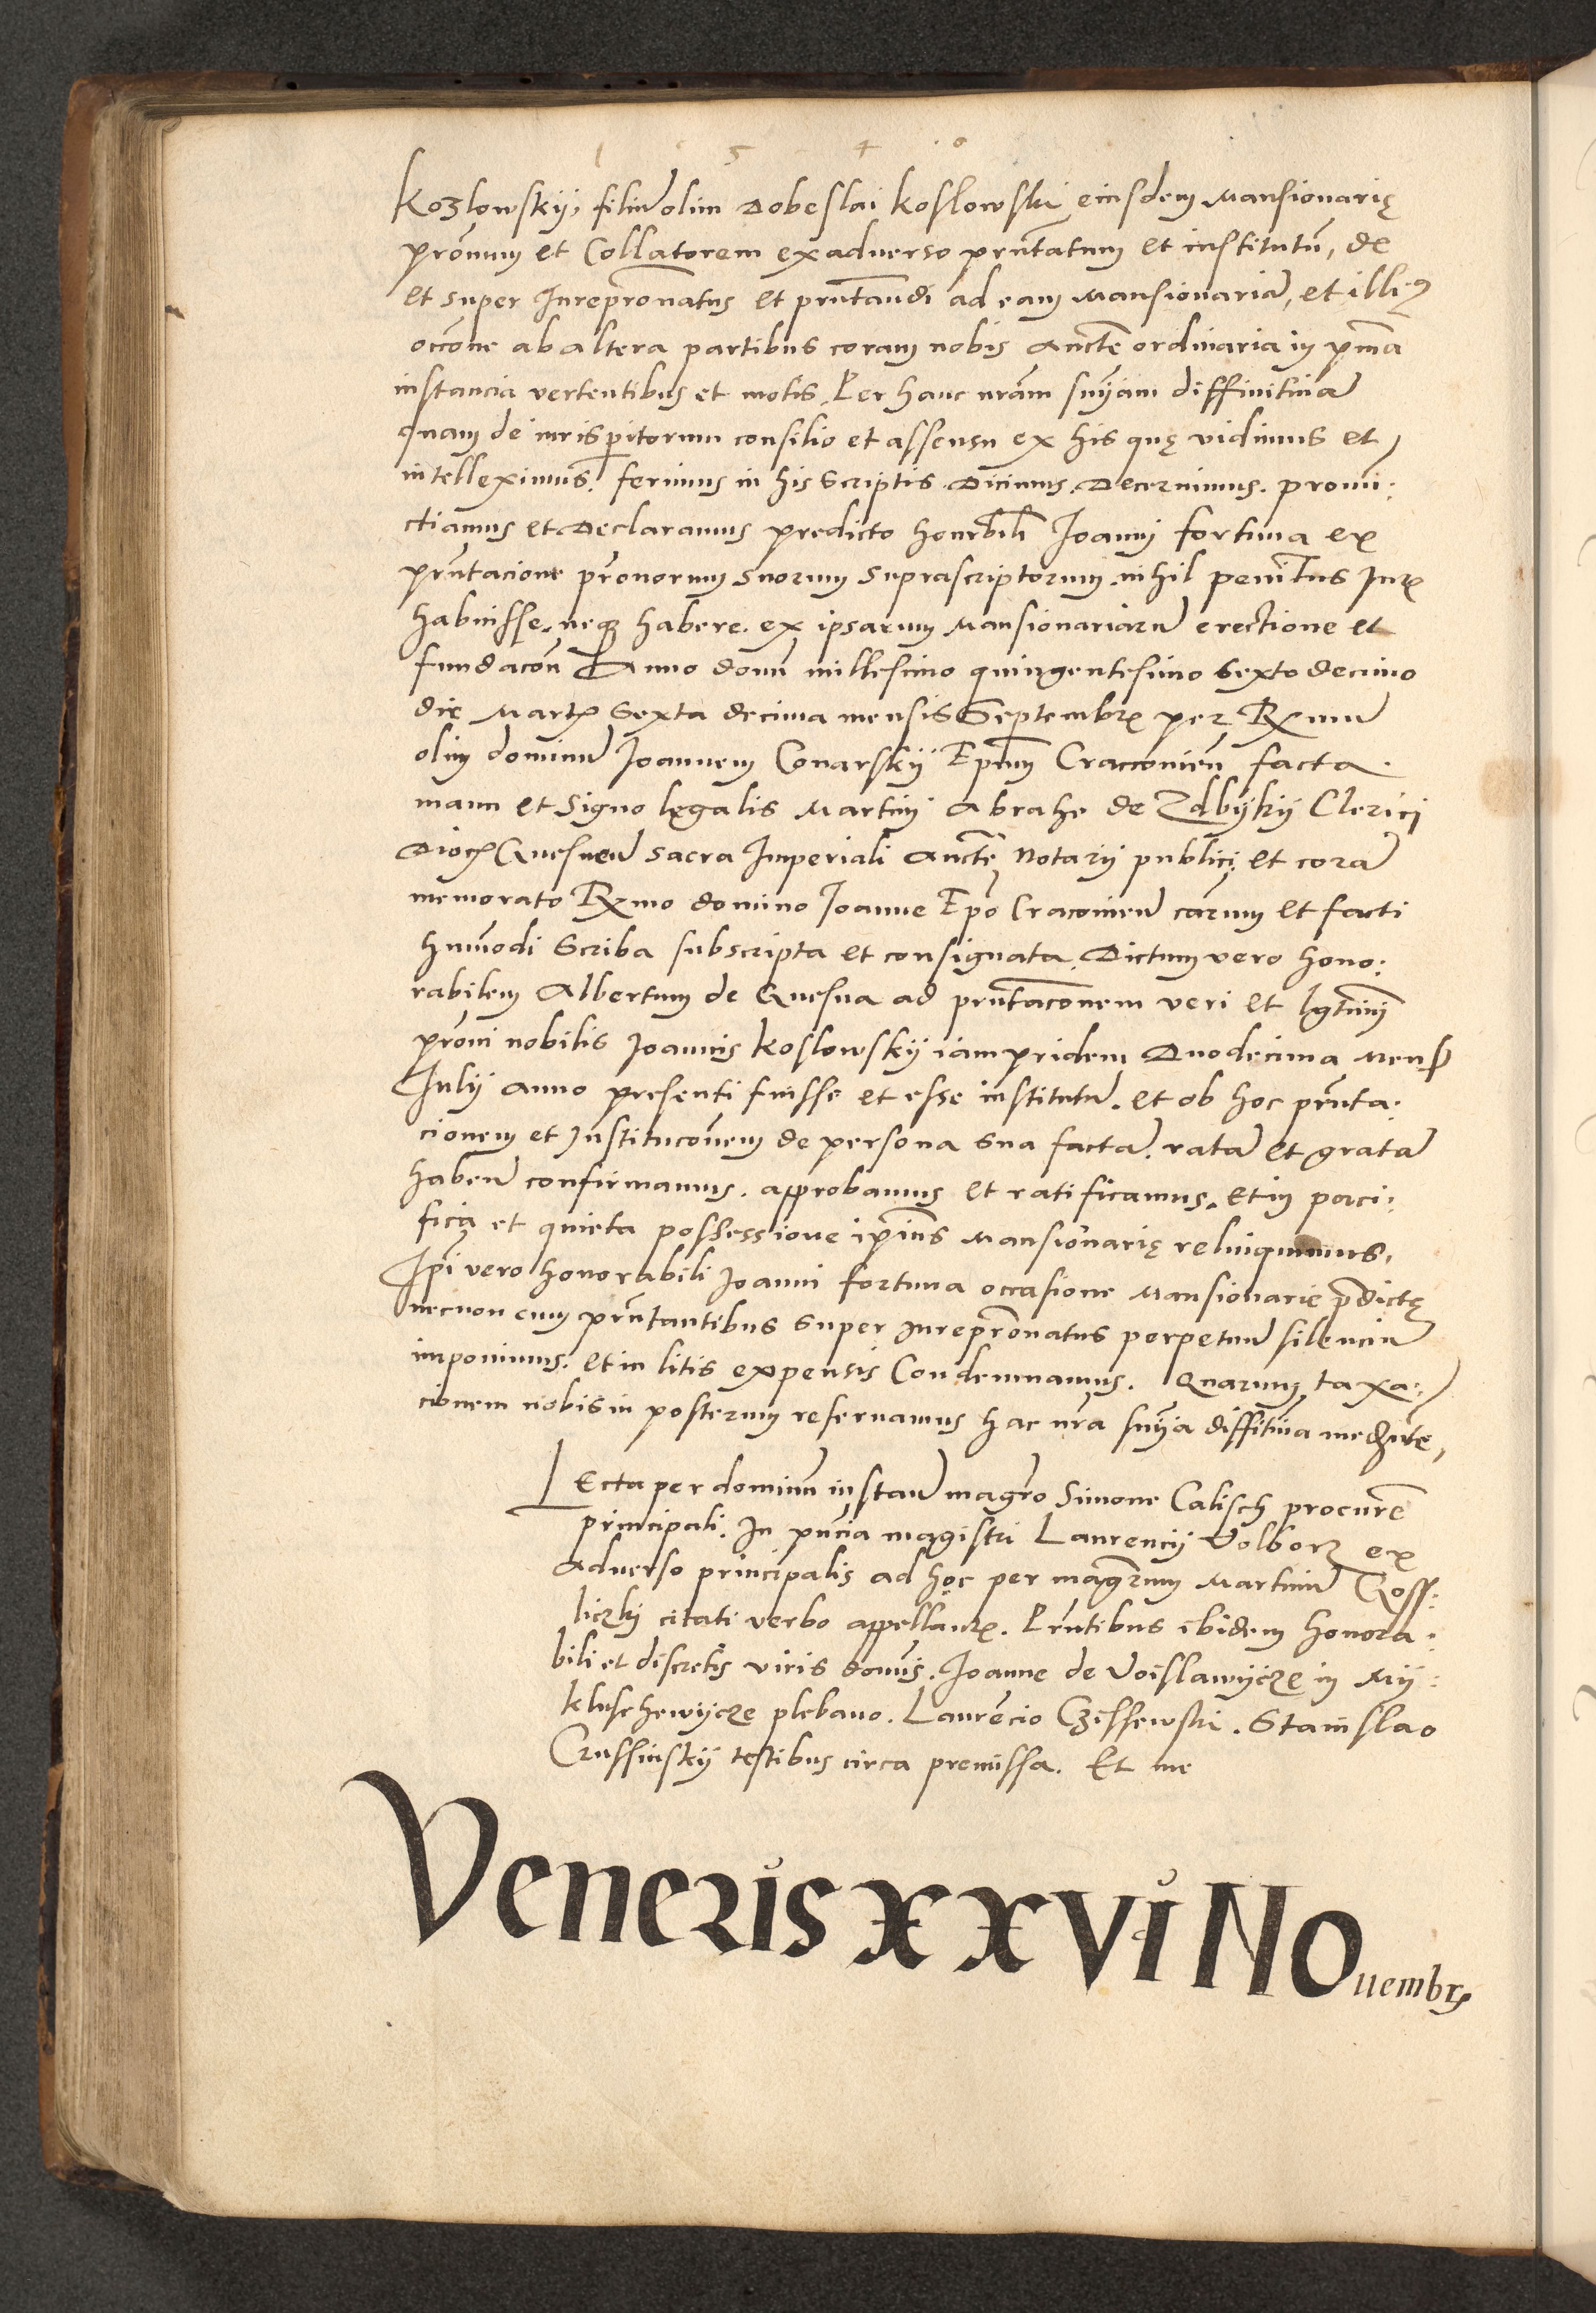 1 5 4 0
Kozlowskÿ, filiū olim Dobeslai Koslowski eiusdem Mansionarię
prōnum et Collatorem ex adverso prn̄tatum et institutū, de
et super Jurepr̄onatus et prn̄tandi ad eam Mansionariā, et illiꝰ
occōne ab altera partibus coram nobis auctē ordinaria in pr̄ma
instancia vertentibus et motis, Per hanc nr̄am sn̄iam diffinitiuā
quam de iurisperitorum consilio et assensu ex his quę vidimus et
intelleximus, ferimus in his scriptis. Dicimus. Decernimus. pronū:
ctiamus et Declaramus predicto honrbili Joanni Fortuna ex
prn̄tacione pr̄onorum suorum suprascriptorum nihil penitus Juris
habuisse, neqȝ habere. ex ipsarum Mansionariarū erectione et
fundacōn Anno dom̄ millesimo quingentesimo sexto decimo
die Martis sexta decima mensis Septembris per Rx̄mum
olim dominū Joannem Conarskÿ Ep̄um Cracouien̄ facta.
manu et signo legalis Martini Abrahe de Zdbÿkÿ Clerici
Dioc̄ Gnesnen̄ sacra Imperiali Auctē Notarij publici, et corā
memorato Rx̄mo domino Joanne Ep̄o Cracouien̄ cārum et facti
hmōdi Scriba subscripta et consignata. Dictum vero hono:
rabilem Albertum de Gnesna ad prn̄tacōnem veri et lgtīmi
pr̄oni nobilis Joannis Koslowskÿ iampridem Duodecima Mensis
Julij anno presenti fuisse et esse institutū. et ob hoc prn̄ta:
cionem et Institucōnem de persona sua factā. ratā et gratā
haben̄ confirmamus. approbamus et ratificamus. et in paci:
fica et quieta possessione ip̄ius Mansionarię relinquimus,
Ip̄i vero honorabili Joanni Fortuna occasione Mansionarie p̄dictę
necnon cum prn̄tantibus super Jurepr̄onatus perpetuū silenciū
imponimus. et in litis expensis Condemnamus. Quarum taxa:
cionem nobis in posterum reseruamus hac nr̄a sn̄ia diffītiua mediante,
Lecta per dominū instan̄ magr̄o Simone Calisch procure
principali. In pn̄cia magistri Laurencij Volborz ex
aduerso principalis ad hoc per magr̄um Martinū Goss:
liczki citati verbo appellan̄. Prn̄tibus ibidem honora:
bili et discretis viris dom̄is. Joanne de Voislawÿcze in Mÿ:
kluschewÿcze plebano. Laurēcio Czissewski. Stanislao
Crussinskÿ testibus circa premissa. Et me
Veneris XXVI Nouembris